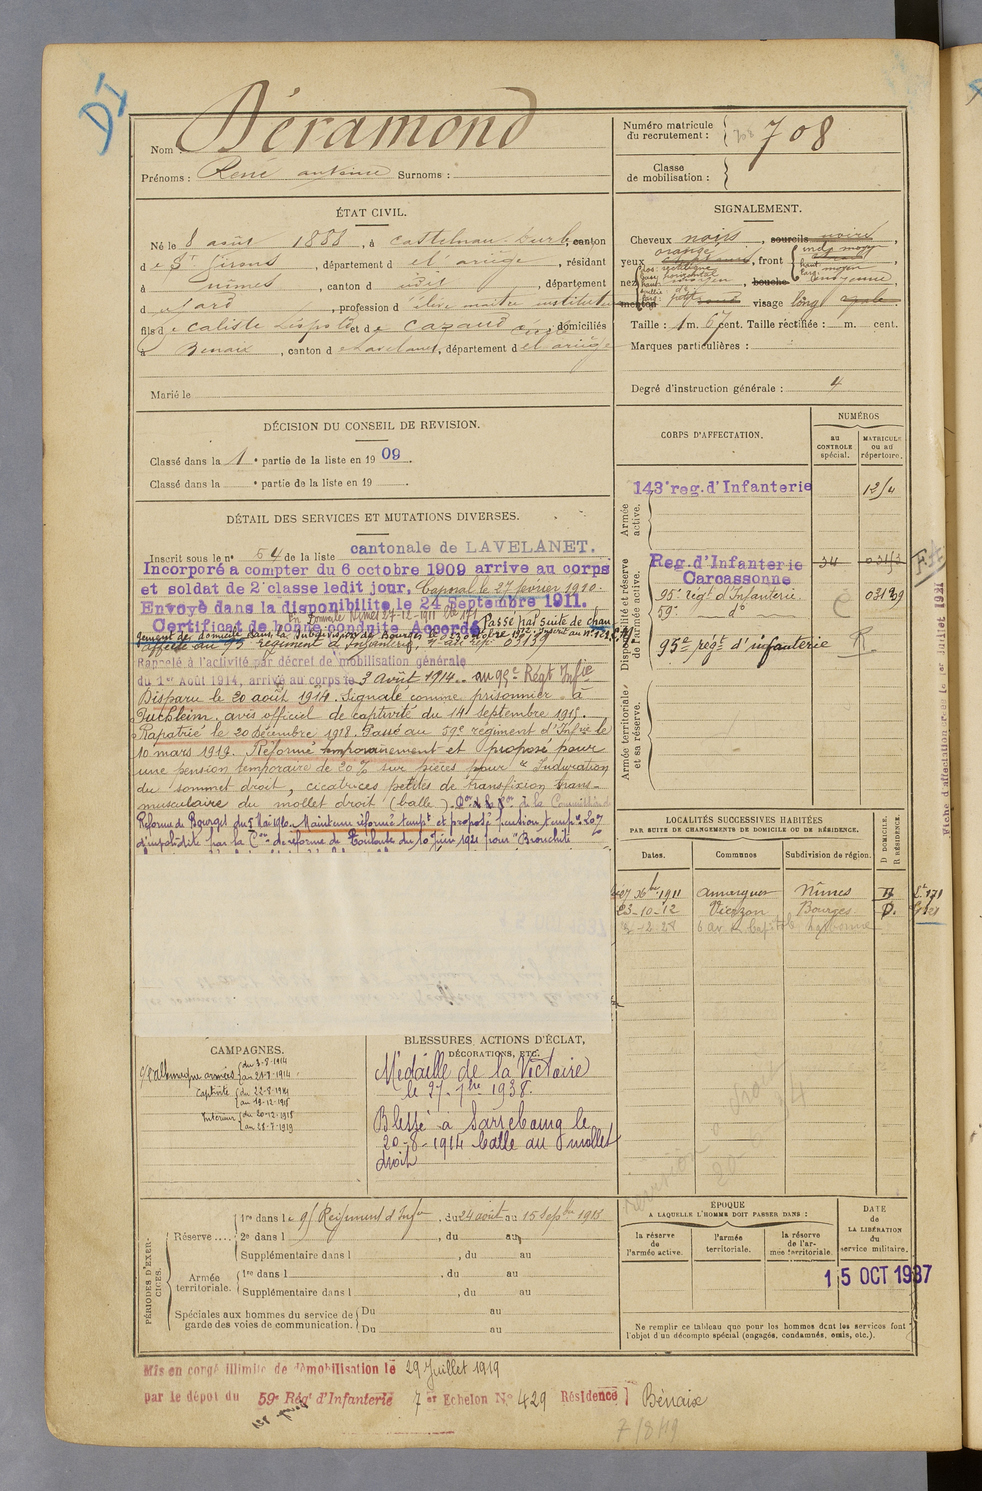 DI
Nom : Déramond
Prénoms : René antoine Surnoms :
Numéro matricule du recrutement : 708
Classe de mobilisation :
ÉTAT CIVIL.
Né le 8 août 1888, à Castelnau-Durb, canton
de St Girons, département de l'ariège, résidant
à nîmes, canton d udit, département
du Gard, profession d'élève maître institut
fils de Caliste Léopold et de Cazaud domiciliés
à Benaix, canton de Lavelanet, département de l'ariège
Marié le
SIGNALEMENT.
Cheveux noirs, sourcils noirs,
yeux orangé, front
nez, bouche moyenne,
menton visage long
Taille : 1 m. 67 cent. Taille rectifiée : m. cent.
Marques particulières :
Degré d'instruction générale : 4
DÉCISION DU CONSEIL DE REVISION.
Classé dans la 1e partie de la liste en 1909.
Classé dans la e partie de la liste en 19 .
DÉTAIL DES SERVICES ET MUTATIONS DIVERSES.
Inscrit sous le n° 54 de la liste cantonale de LAVELANET.
Incorporé à compter du 6 octobre 1909 arrive au corps
et soldat de 2e classe ledit jour. Caporal le 27 février 1910.
Envoyé dans la disponibilité le 24 Septembre 1911.
Certificat de bonne conduite Accordé Passé par suite de chan
gement de domicile dans la Subdivision de Bourges le 23 octobre 1912
affecté au 95e régiment de Infanterie, 03139
Rappelé à l'activité par décret de mobilisation générale
du 1er Août 1914, arrivé au corps le 3 Août 1914. au 95e Régt Infie
Disparu le 20 août 1914. Signalé comme prisonnier à
Puchheim. avis officiel de captivité du 14 septembre 1915.
Rapatrié le 20 décembre 1918. Passé au 59e régiment d'Infie le
10 mars 1919. Réformé temporairement et proposé pour
une pension temporaire de 20 % sur pièces pour "Induration
du sommet droit, cicatrices petites de transfixion trans-
musculaire du mollet droit (balle).
Réforme de Bourges du 5 Mai 1920. Maintenu réformé tempt et proposé pension temp.
d'invalidité par la Con de réforme de Toulouse du 10 Juin 1921 pour "Bronchite
CORPS D'AFFECTATION.
NUMÉROS
au CONTROLE spécial.
MATRICULE ou au répertoire.
Armée active.
143e reg. d'Infanterie
Disponibilité et réserve de l'armée active.
Reg. d'Infanterie Carcassonne 34
95e régt d'Infanterie 03139
59e do
95e regt d'infanterie R
Armée territoriale et sa réserve.
Fiche d'affectation créée le 1er Juillet 1921
LOCALITÉS SUCCESSIVES HABITÉES
PAR SUITE DE CHANGEMENTS DE DOMICILE OU DE RÉSIDENCE.
Dates. Communes Subdivision de région. D DOMICILE. R RÉSIDENCE.
27 Xbre 1911 Aimargues Nîmes
23-10-12 Vierzon Bourges D.
CAMPAGNES.
c/ l'Allemagne armées du 3-8-1914
Captivité du 22-8-1914
au 19-12-1918
Intérieur du 20-12-1918
au 28-7-1919
BLESSURES, ACTIONS D'ÉCLAT, DÉCORATIONS, ETC.
Médaille de la Victoire
le 27-7bre 1938.
Blessé à Sarrebourg le
20-8-1914 balle au mollet
droit
PÉRIODES D'EXERCICES.
Réserve.... 1re dans le 95 Régiment d'Infie, du 24 août au 15 Septbre 1913
2e dans l , du au
Supplémentaire dans l , du au
Armée territoriale. 1re dans l , du au
Supplémentaire dans l , du au
Spéciales aux hommes du service de garde des voies de communication. Du au
Du au
ÉPOQUE
A LAQUELLE L'HOMME DOIT PASSER DANS :
la réserve de l'armée active.
l'armée territoriale.
la réserve de l'armée territoriale.
DATE de LA LIBÉRATION du service militaire.
15 OCT 1937
Ne remplir ce tableau que pour les hommes dont les services font
l'objet d'un décompte spécial (engagés, condamnés, omis, etc.).
Mis en congé illimité de démobilisation le 29 Juillet 1919
par le dépôt du 59e Régt d'Infanterie 7er Echelon N° 429 Résidence Bénaix
7/8/19